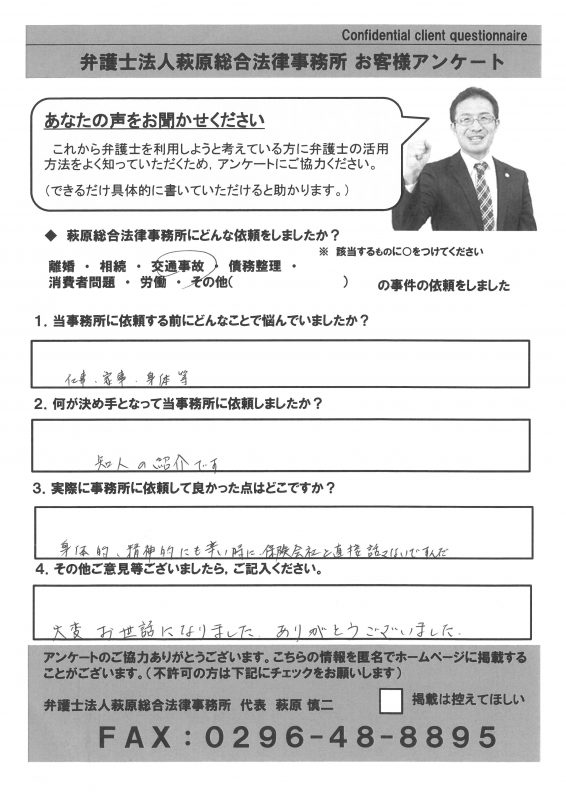 Confidential client questionnaire
弁護士法人萩原総合法律事務所 お客様アンケート
あなたの声をお聞かせください
これから弁護士を利用しようと考えている方に弁護士の活用
方法をよく知っていただくため，アンケートにご協力ください。
（できるだけ具体的に書いていただけると助かります。）
◆ 萩原総合法律事務所にどんな依頼をしましたか？
※ 該当するものに○をつけてください
離婚 ・ 相続 ・ 交通事故 ・ 債務整理 ・
消費者問題 ・ 労働 ・ その他( )
の事件の依頼をしました
1．当事務所に依頼する前にどんなことで悩んでいましたか？
仕事、家事、身体等
2．何が決め手となって当事務所に依頼しましたか？
知人の紹介です
3．実際に事務所に依頼して良かった点はどこですか？
身体的、精神的にも辛い時に、保険会社と直接話さないですんだ
4．その他ご意見等ございましたら，ご記入ください。
大変お世話になりました、ありがとうございました、
アンケートのご協力ありがとうございます。こちらの情報を匿名でホームページに掲載する
ことがございます。（不許可の方は下記にチェックをお願いします）
弁護士法人萩原総合法律事務所 代表 萩原 慎二
掲載は控えてほしい
FAX：0296-48-8895